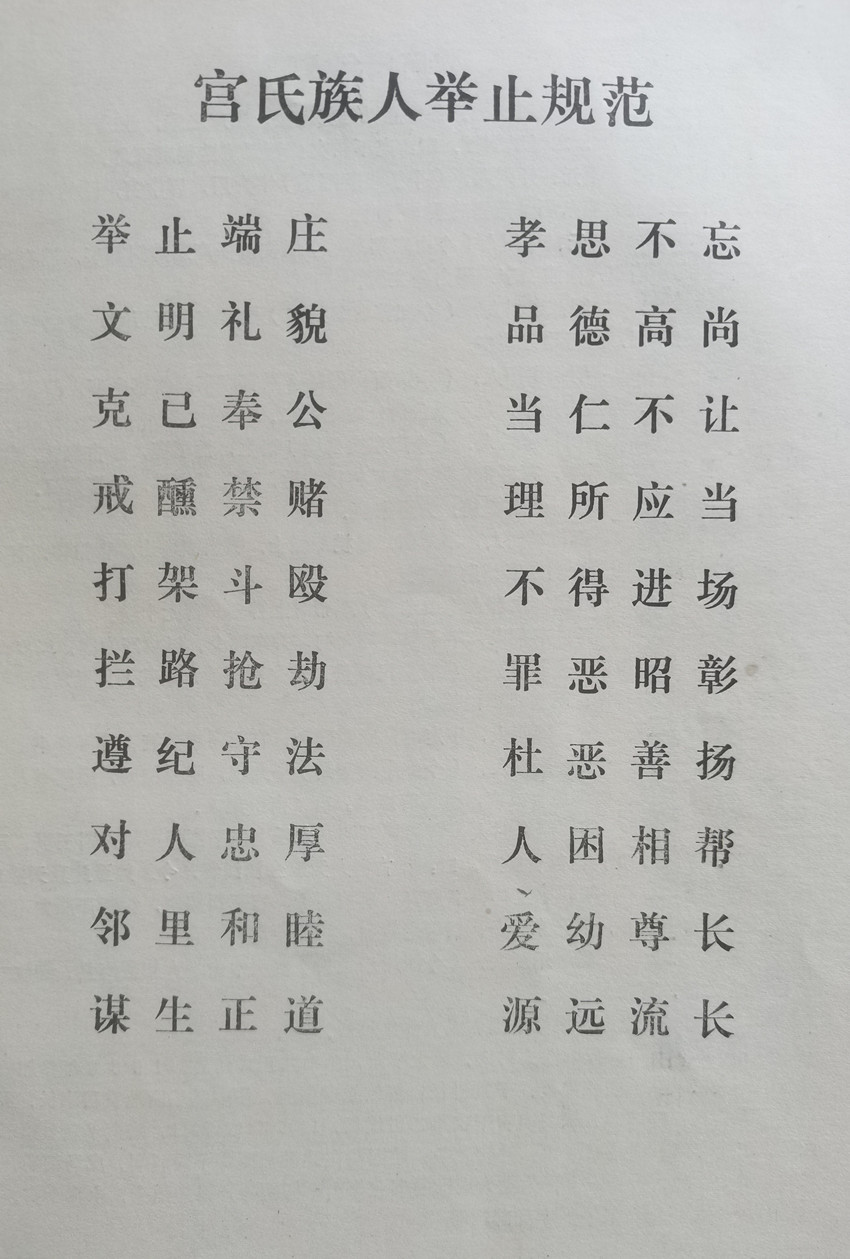 宫氏族人举止规范
举止端庄 孝思不忘
文明礼貌 品德高尚
克已奉公 当仁不让
戒醺禁赌 理所应当
打架斗殴 不得进场
拦路抢劫 罪恶昭彰
遵纪守法 杜恶善扬
对人忠厚 人困相帮
邻里和睦 爱幼尊长
谋生正道 源远流长